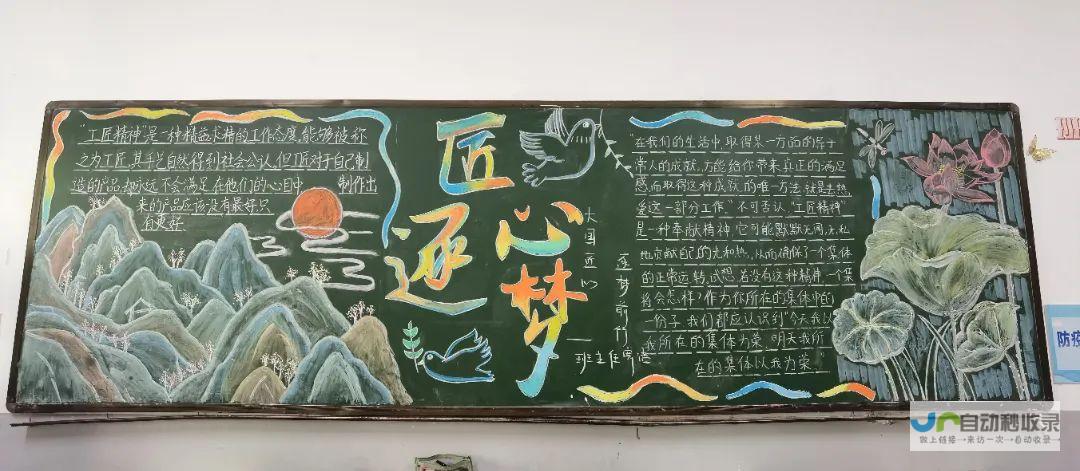 "工匠精神"是一种精益求精的工作态度,能够被称
之为工匠,其手艺自然得利社会公认,但匠对于自己制
造的产品却永远不会满足,在他们的心目中 制作出
来的产品应该没有最好,只
有更好
匠心
逐梦
大国匠心
逐梦前行
班主任
"在我们的生活中,取得某一方面的异于
常人的成就,方能给你带来真正的满足
感,而取得这种成就的唯一方法,就是去热
爱这一部分工作。"不可否认,"工匠精神"
是一种奉献精神,它可能默默无闻,无私
地贡献自己的光和热,从而确保了一个集体
的正常运转,试想,若没有这种精神,一个集
将会怎样?作为你所在的集体中的
一份子,我们都应认识到"今天我以
我所在的集体为荣,明天我所
在的集体以我为荣"
防疫
自动秒收录
做上链接→来访一次→自动收录